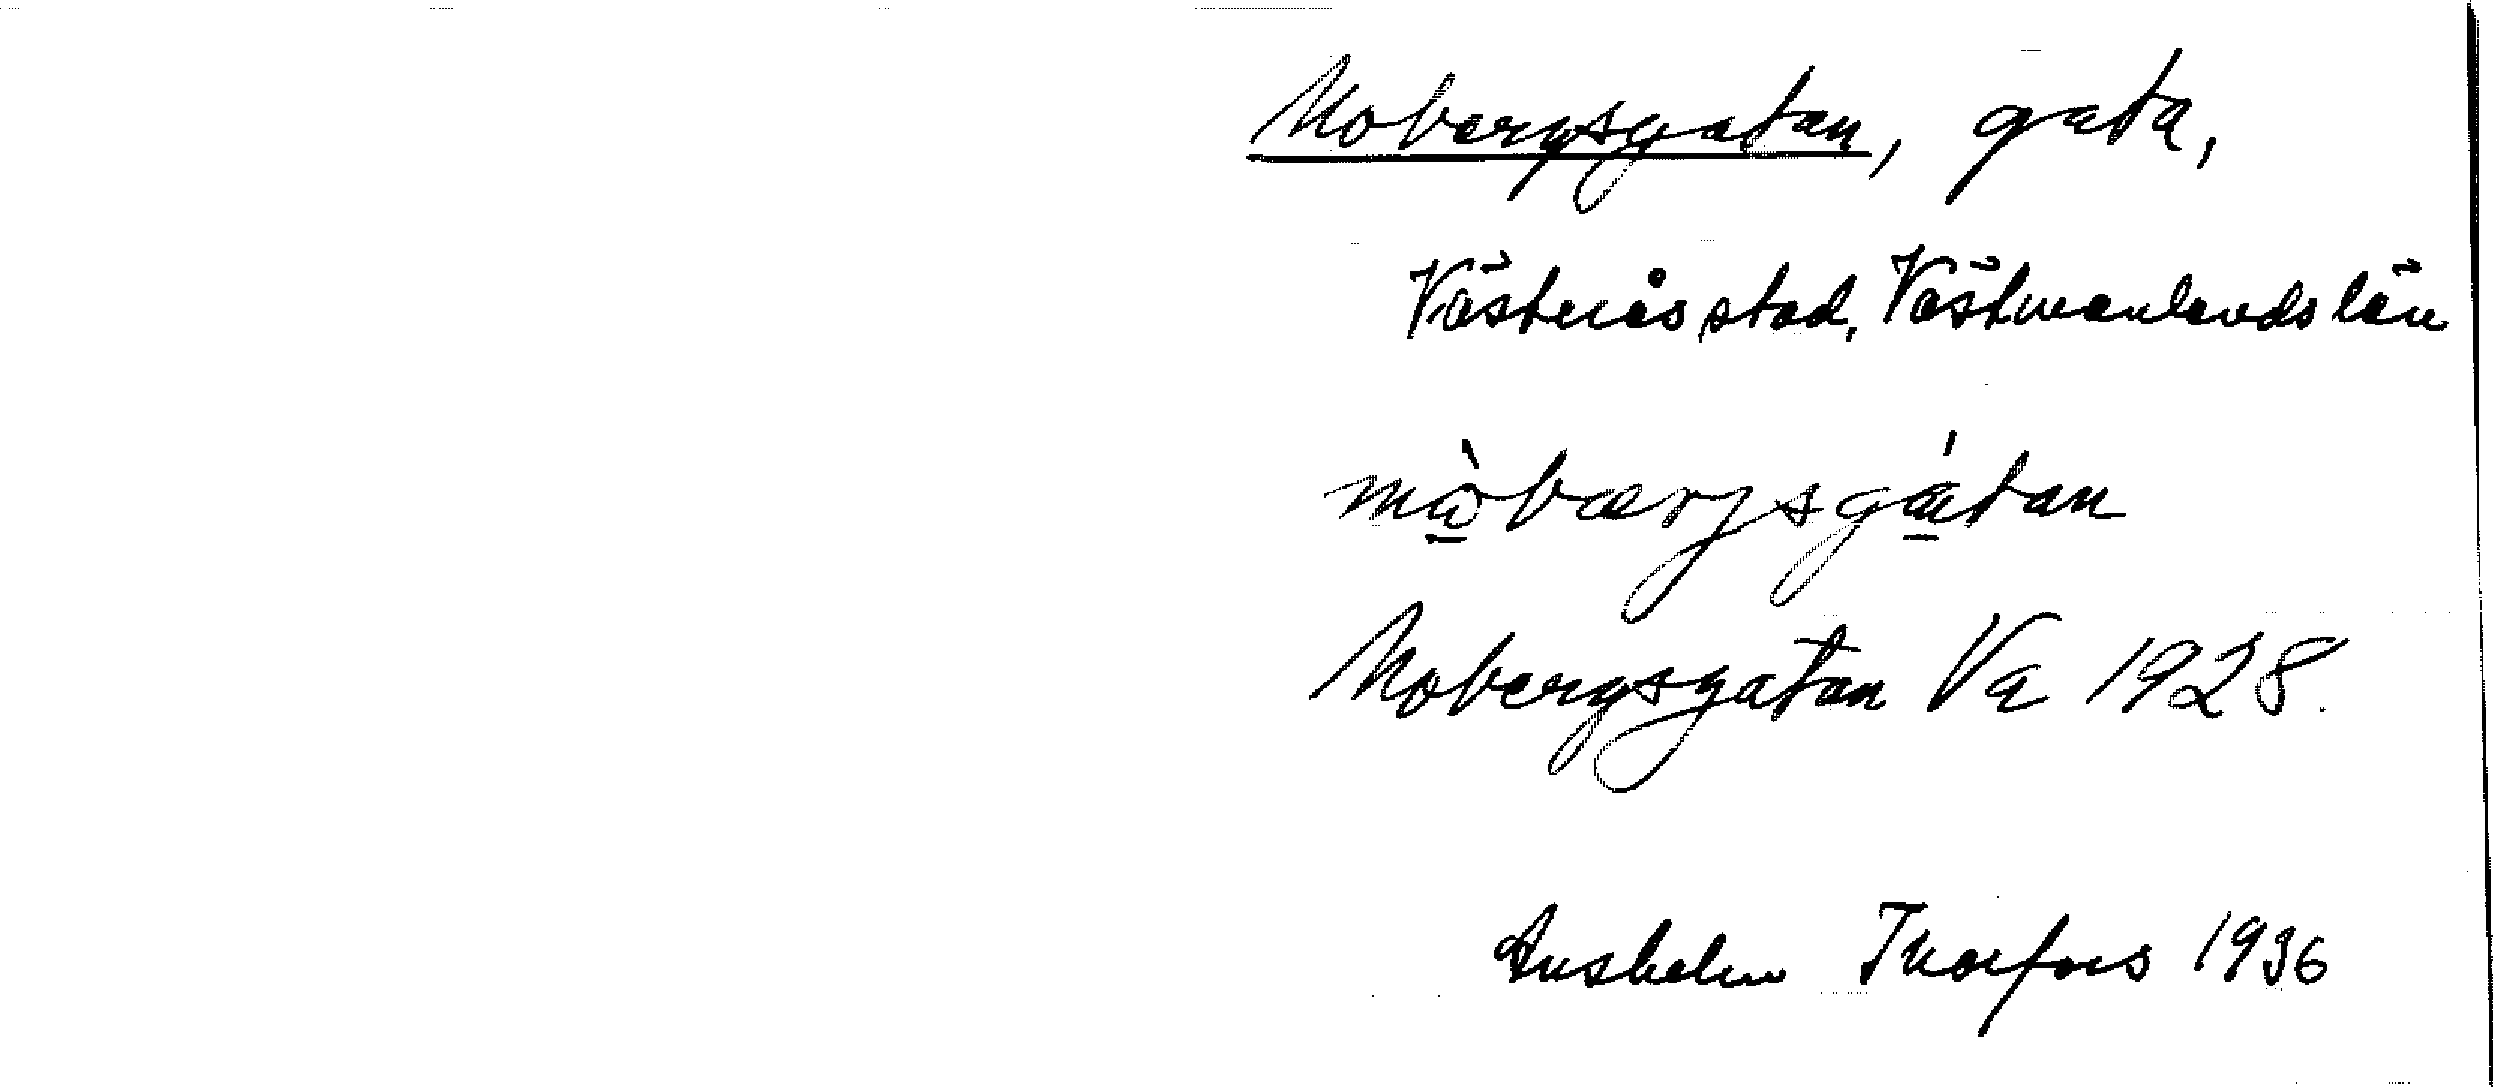 Mobergsgatan, gata,
Västerås stad, Västmanlands län
mò̱bærjsgá̱tan
Mobergsgatan Va 1928.
Anshelm Thorfors 1936